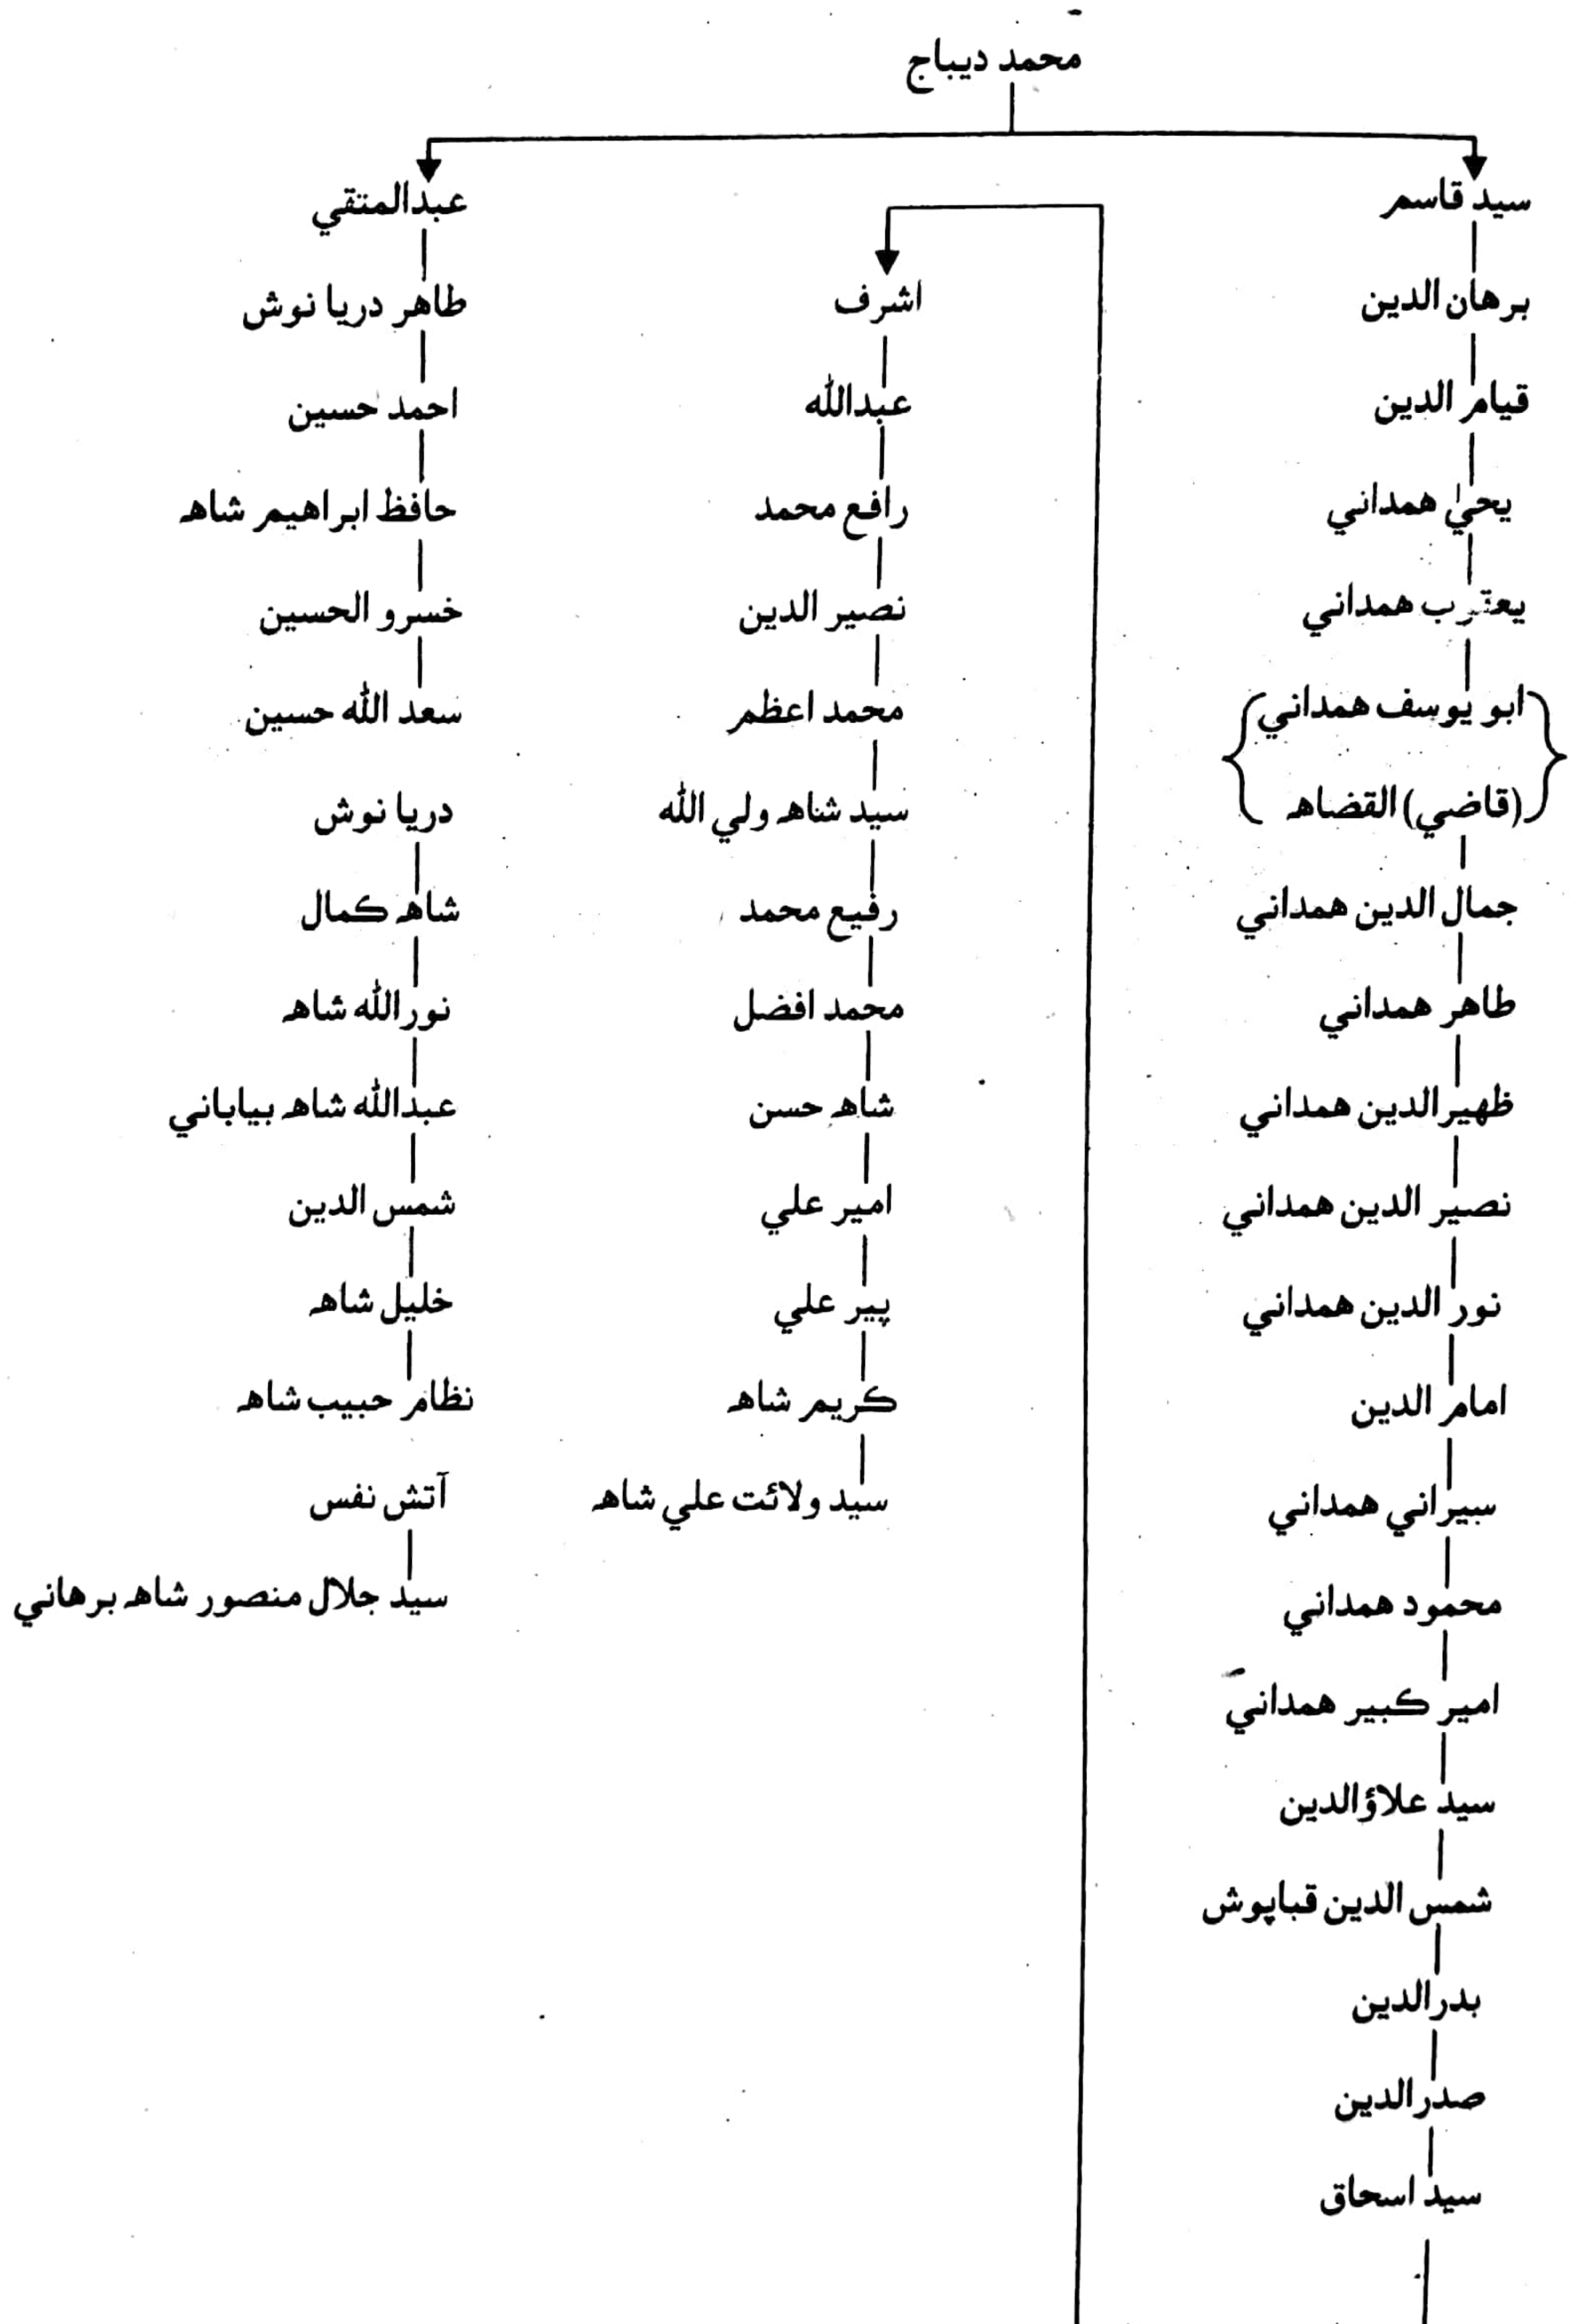 محمد ديباج
سيد قاسم
برهان الدين
قيام الدين
يحيٰ همداني
همداني
ابو يوسف همداني
(قاضي) القضاهه
جمال الدين همداني
طاهر همداني
ظهيرالدين همداني
نصير الدين همداني
نور الدين همداني
امام الدين
سبيراني همداني
محمود همداني
امير ڪبير همداني
سيد علاؤالدين
شمس الدين قباپوش
بدرالدين
صدرالدين
سيد اسحاق
اشرف
عبدالله
رافع محمد
نصير الدين
محمد اعظم
سيد شاهه ولي الله
رفيع محمد
محمد افضل
شاهه حسن
امير علي
پير علي
ڪريم شاهه
سيد ولائت علي شاهه
عبدالمتقي
طاهر دريا نوش
احمد حسين
حافظ ابراهيم شاهه
خسرو الحسين
سعد الله حسين
دريا نوش
شاهه ڪمال
نورالله شاهه
عبدالله شاهه بياباني
شمس الدين
خليل شاهه
نظام حبيب شاهه
آتش نفس
سيد جلال منصور شاهه برهاني